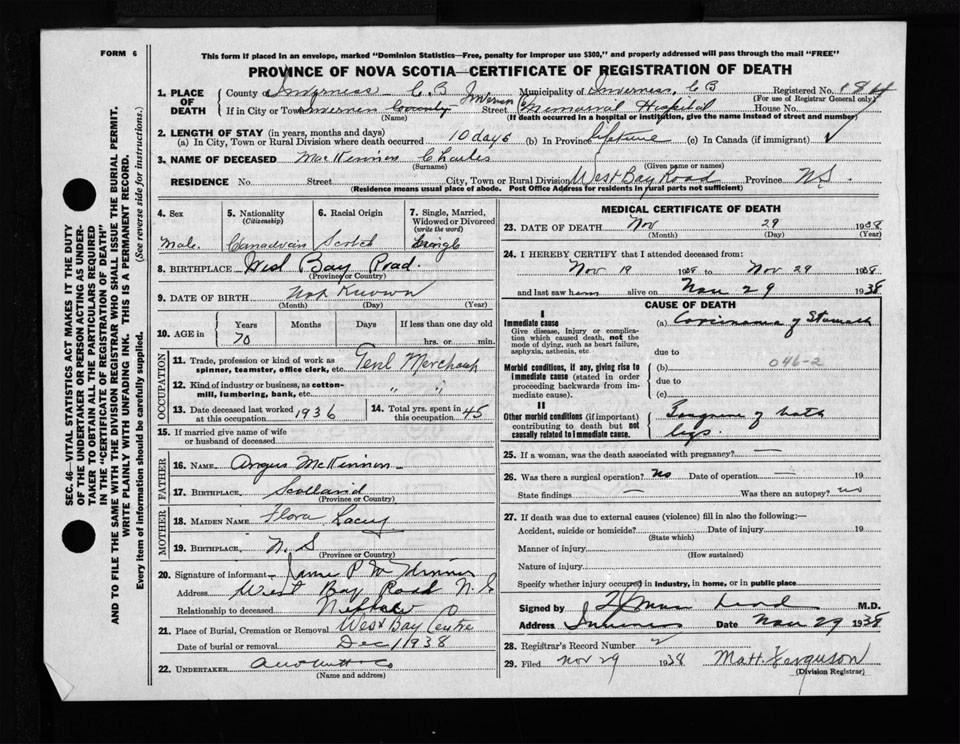 FORM 6
This form if placed in an envelope, marked "Dominion Statistics—Free, penalty for improper use $300," and properly addressed will pass through the mail "FREE"
PROVINCE OF NOVA SCOTIA—CERTIFICATE OF REGISTRATION OF DEATH
1. PLACE OF DEATH
County of Inverness C.B Municipality of Inverness, C B Registered No.
(For use of Registrar General only)
If in City or Town Inverness County Street Inverness Memorial Hospital House No.
(Name) (If death occurred in a hospital or institution, give the name instead of street and number)
2. LENGTH OF STAY (in years, months and days)
(a) In City, Town or Rural Division where death occurred 10 days (b) In Province lifetime (c) In Canada (if immigrant)
3. NAME OF DECEASED MacKinnon Charles
(Surname) (Given name or names)
RESIDENCE No. Street City, Town or Rural Division West Bay Road Province N.S.
(Residence means usual place of abode. Post Office Address for residents in rural parts not sufficient)
4. Sex
Male.
5. Nationality (Citizenship)
Canadian
6. Racial Origin
Scotch
7. Single, Married, Widowed or Divorced (write the word)
Single
8. BIRTHPLACE West Bay Road.
(Province or Country)
9. DATE OF BIRTH Not Known
(Month) (Day) (Year)
10. AGE in Years Months Days If less than one day old
70 hrs. or min.
OCCUPATION
11. Trade, profession or kind of work as spinner, teamster, office clerk, etc. Merchant
12. Kind of industry or business, as cotton-mill, lumbering, bank, etc. " "
13. Date deceased last worked at this occupation 1936
14. Total yrs. spent in this occupation 45
15. If married give name of wife or husband of deceased
FATHER
16. NAME Angus McKinnon
17. BIRTHPLACE Scotland
(Province or Country)
MOTHER
18. MAIDEN NAME Flora Lacey
19. BIRTHPLACE N. S
(Province or Country)
20. Signature of informant James P
Address West Bay Road N.S
Relationship to deceased Nephew
21. Place of Burial, Cremation or Removal West Bay Centre
Date of burial or removal Dec 1 1938
22. UNDERTAKER
(Name and address)
MEDICAL CERTIFICATE OF DEATH
23. DATE OF DEATH Nov 29 1938
(Month) (Day) (Year)
24. I HEREBY CERTIFY that I attended deceased from:
Nov 19 1938 to Nov 29 1938
and last saw him alive on Nov 29 1938
CAUSE OF DEATH
I
Immediate cause
Give disease, injury or complication which caused death, not the mode of dying, such as heart failure, asphyxia, asthenia, etc.
(a) Carcinoma of Stomach
due to
Morbid conditions, if any, giving rise to immediate cause (stated in order proceeding backwards from immediate cause).
(b) 046-2
due to
(c)
II
Other morbid conditions (if important) contributing to death but not causally related to immediate cause.
Gangrene of both legs.
25. If a woman, was the death associated with pregnancy? —
26. Was there a surgical operation? No Date of operation — 19
State findings — Was there an autopsy? no
27. If death was due to external causes (violence) fill in also the following:—
Accident, suicide or homicide? Date of injury 19
(State which)
Manner of injury
(How sustained)
Nature of injury
Specify whether injury occurred in industry, in home, or in public place
Signed by M.D.
Address Inverness Date Nov 29 1938
28. Registrar's Record Number 2
29. Filed nov 29 1938 Matt. Ferguson
(Division Registrar)
SEC. 46—VITAL STATISTICS ACT MAKES IT THE DUTY
OF THE UNDERTAKER OR PERSON ACTING AS UNDER-
TAKER TO OBTAIN ALL THE PARTICULARS REQUIRED
IN THE "CERTIFICATE OF REGISTRATION OF DEATH"
AND TO FILE THE SAME WITH THE DIVISION REGISTRAR WHO SHALL ISSUE THE BURIAL PERMIT.
WRITE PLAINLY WITH UNFADING INK. THIS IS A PERMANENT RECORD.
Every item of information should be carefully supplied. (See reverse side for instructions.)